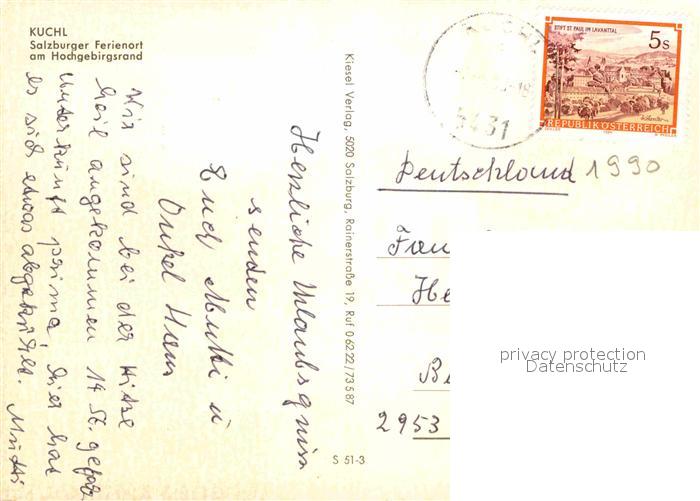 KUCHL
Salzburger Ferienort
am Hochgebirgsrand
Wir sind bei der Hitze
heil angekommen 14 St. gefahr
Unterkunft prima, hier hat
es sich etwas abgekühlt. Mutti
Herzliche Urlaubsgrüsse
senden
Euch Mutti u
Onkel Hans
Kiesel Verlag, 5020 Salzburg, Rainerstraße 19, Ruf 0 62 22 / 7 35 87
S 51-3
5431
STIFT ST. PAUL IM LAVANTTAL
5 S
REPUBLIK ÖSTERREICH
Deutschland 1990
Fam
He
B
2953
privacy protection
Datenschutz